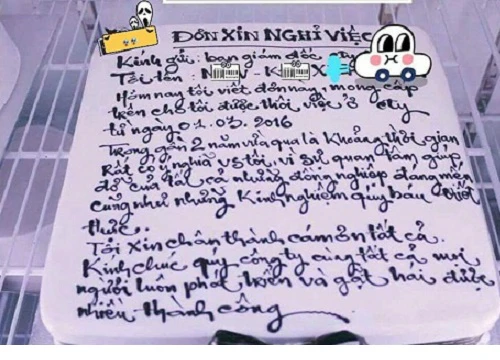 ĐƠN XIN NGHỈ VIỆC
Kính gửi: ban giám đốc
Tôi tên: N
Hôm nay tôi viết đơn này, mong cấp
trên cho tôi được thôi việc ở cty
từ ngày 01.03.2016
Trong gần 2 năm vừa qua là khoảng thời gian
Rất có ý nghĩa vs tôi, vì sự quan tâm giúp
đỡ của tất cả những đồng nghiệp đáng mến
cũng như những kinh nghiệm quý báu
thức.
Tôi xin chân thành cám ơn tất cả.
Kính chúc quý công ty cùng tất cả mọi
người luôn phát triển và gặt hái được
nhiều thành công